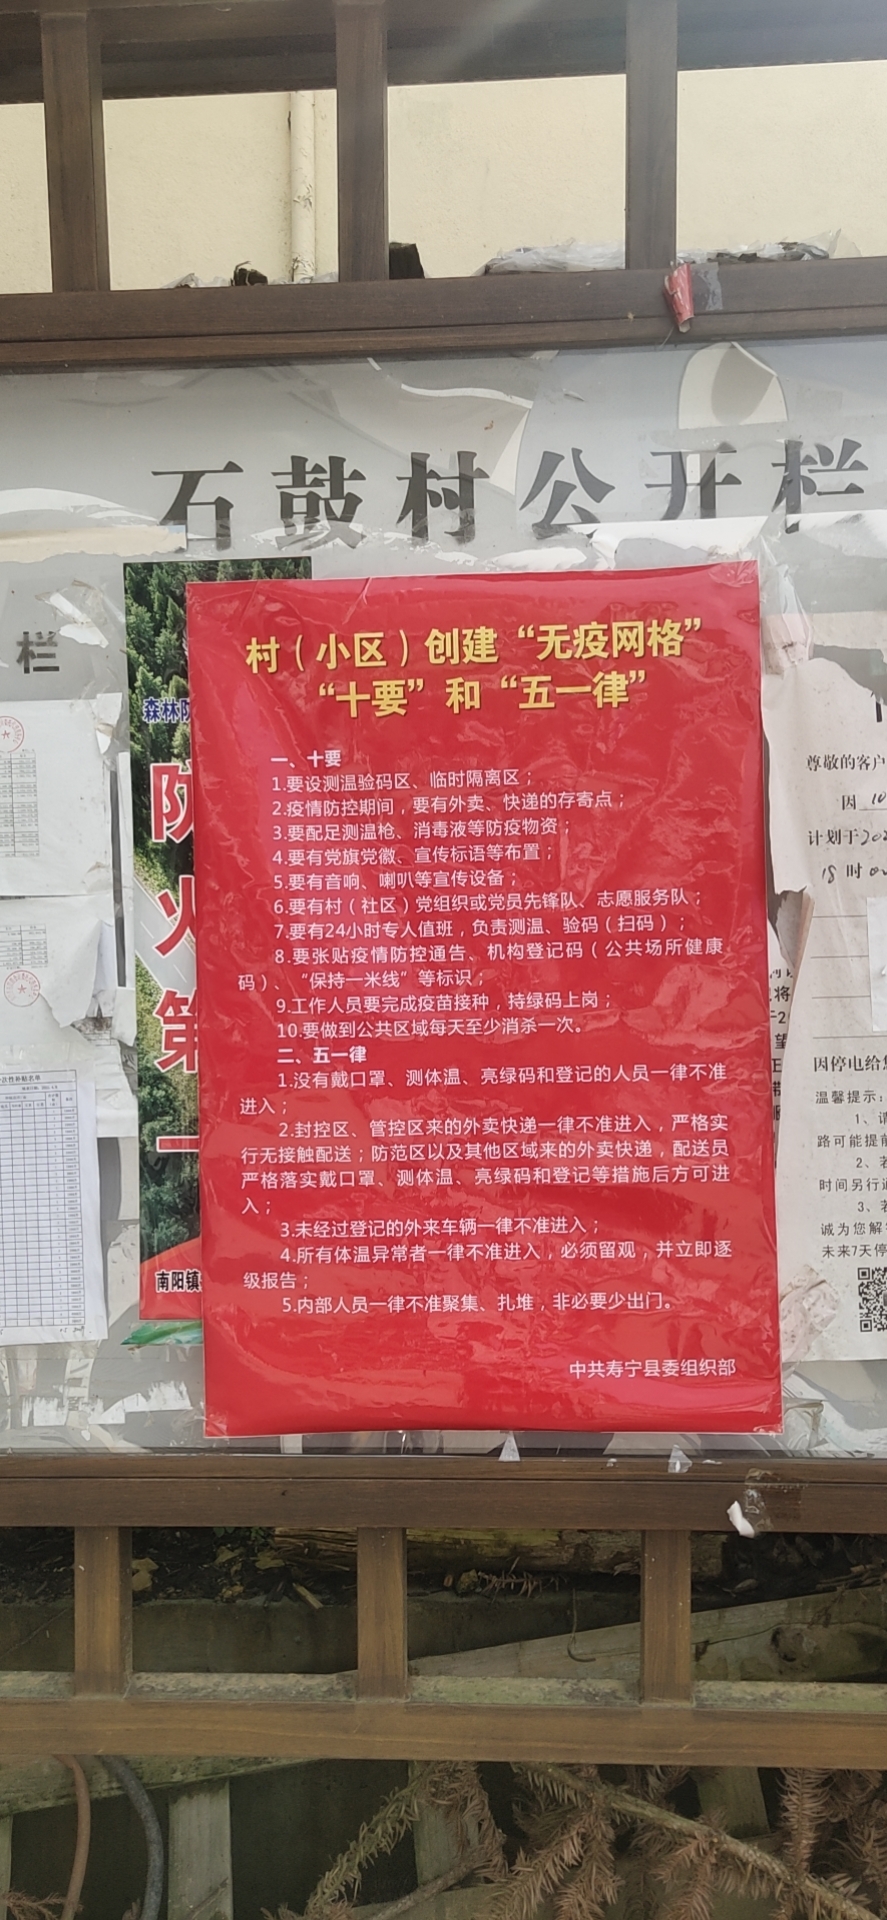 石鼓村公开栏
栏
村（小区）创建“无疫网格”
“十要”和“五一律”
一、十要
1.要设测温验码区、临时隔离区；
2.疫情防控期间，要有外卖、快递的存寄点；
3.要配足测温枪、消毒液等防疫物资；
4.要有党旗党徽、宣传标语等布置；
5.要有音响、喇叭等宣传设备；
6.要有村（社区）党组织或党员先锋队、志愿服务队；
7.要有24小时专人值班，负责测温、验码（扫码）；
8.要张贴疫情防控通告、机构登记码（公共场所健康
码）、“保持一米线”等标识；
9.工作人员要完成疫苗接种，持绿码上岗；
10.要做到公共区域每天至少消杀一次。
二、五一律
1.没有戴口罩、测体温、亮绿码和登记的人员一律不准
进入；
2.封控区、管控区来的外卖快递一律不准进入，严格实
行无接触配送；防范区以及其他区域来的外卖快递，配送员
严格落实戴口罩、测体温、亮绿码和登记等措施后方可进
入；
3.未经过登记的外来车辆一律不准进入；
4.所有体温异常者一律不准进入，必须留观，并立即逐
级报告；
5.内部人员一律不准聚集、扎堆，非必要少出门。
中共寿宁县委组织部
森林防
防
火
第
一
南阳镇
尊敬的客户
因 10
计划于202
18时00
因停电给您
温馨提示：
1、
路可能提前
2、若
时间另行通
3、若
诚为您解
未来7天停